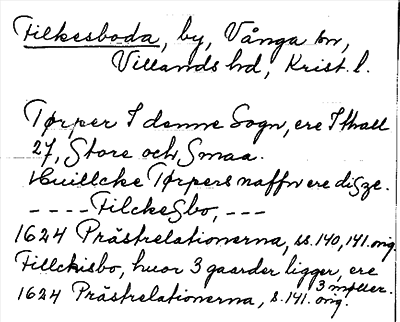 Filkesboda, by, Vånga sn,
Villands hd, Krist. l.
Tørper I denne Sogn, ere I thall
27, Store och Smaa.
Huillcke Tørpers naffn ere disze.
- - - - Filckesbo, - - -
1624 Prästrelationerna, ss. 140, 141. orig.
Fillckisbo, huor 3 gaarder ligger, ere
3 møller.
1624 Prästrelationerna, s. 141. orig.